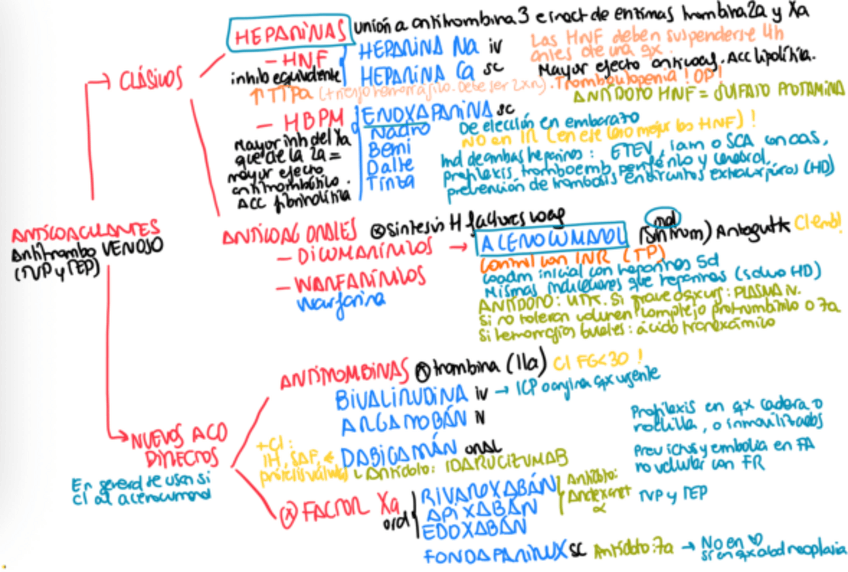 HEPARINAS unión a antitrombina 3 e inact de enzimas trombina 2a y Xa
- HNF
inhib equivalente
HEPARINA Na iv
HEPARINA Ca sc
Las HNF deben suspenderse 4h
antes de una qx.
Mayor efecto anticoag. Acc lipolítica.
↑ TTPa (+ riesgo hemorrágico. Debe ser 2xn). Trombopenia! OP!
ANTÍDOTO HNF = SULFATO PROTAMINA
→ CLÁSICOS
- HBPM
Mayor inh del Xa
que de la 2a =
mayor efecto
antitrombótico.
Acc fibrinolítica
ENOXAPARINA sc
Nadro
Bemi
Dalte
Tinza
De elección en embarazo
NO en IR (en ese caso mejor las HNF)!
Ind de ambas heparinas: ETEV, iam o SCA con coag,
profilaxis tromboemb, periférico y cerebral,
prevención de trombosis en circuitos extracorpóreos (HD)
ANTICOAGULANTES
Antitrombo VENOSO
(TVP y TEP)
ANTICOAG ORALES ⊗ Síntesis H factores coag
- DICUMARÍNICOS → ACENOCUMAROL (Sintrom) Antagvitk CI emb!
Control con INR (TP)
Coadm inicial con heparinas 5d
Mismas indicaciones que heparinas (salvo HD)
- WARFARÍNICOS
Warfarina
ANTÍDOTO: VITK. Si grave PLASMA iv.
Si no toleran volumen complejo protrombínico o 7a
Si hemorragias bucales: ácido tranexámico
ANTITROMBINAS ⊗ trombina (IIa) CI FG<30!
BIVALIRUDINA iv → ICP o angina qx urgente
ARGATROBÁN IV
→ NUEVOS ACO
DIRECTOS
En general se usan si
CI al acenocumarol
+ CI:
IH, SAF,
prótesis valvular
DABIGATRÁN oral
↳ Antídoto: IDARUCIZUMAB
Profilaxis en qx cadera o
rodilla, o inmovilizados
Prev ictus y embolia en FA
no valvular con FR
TVP y TEP
⊗ FACTOR Xa
oral
RIVAROXABÁN
APIXABÁN
EDOXABÁN
Antídoto:
Andexanet
α
FONDAPARINUX sc Antídoto: 7a → No en ♡
Si en qx abd neoplasia